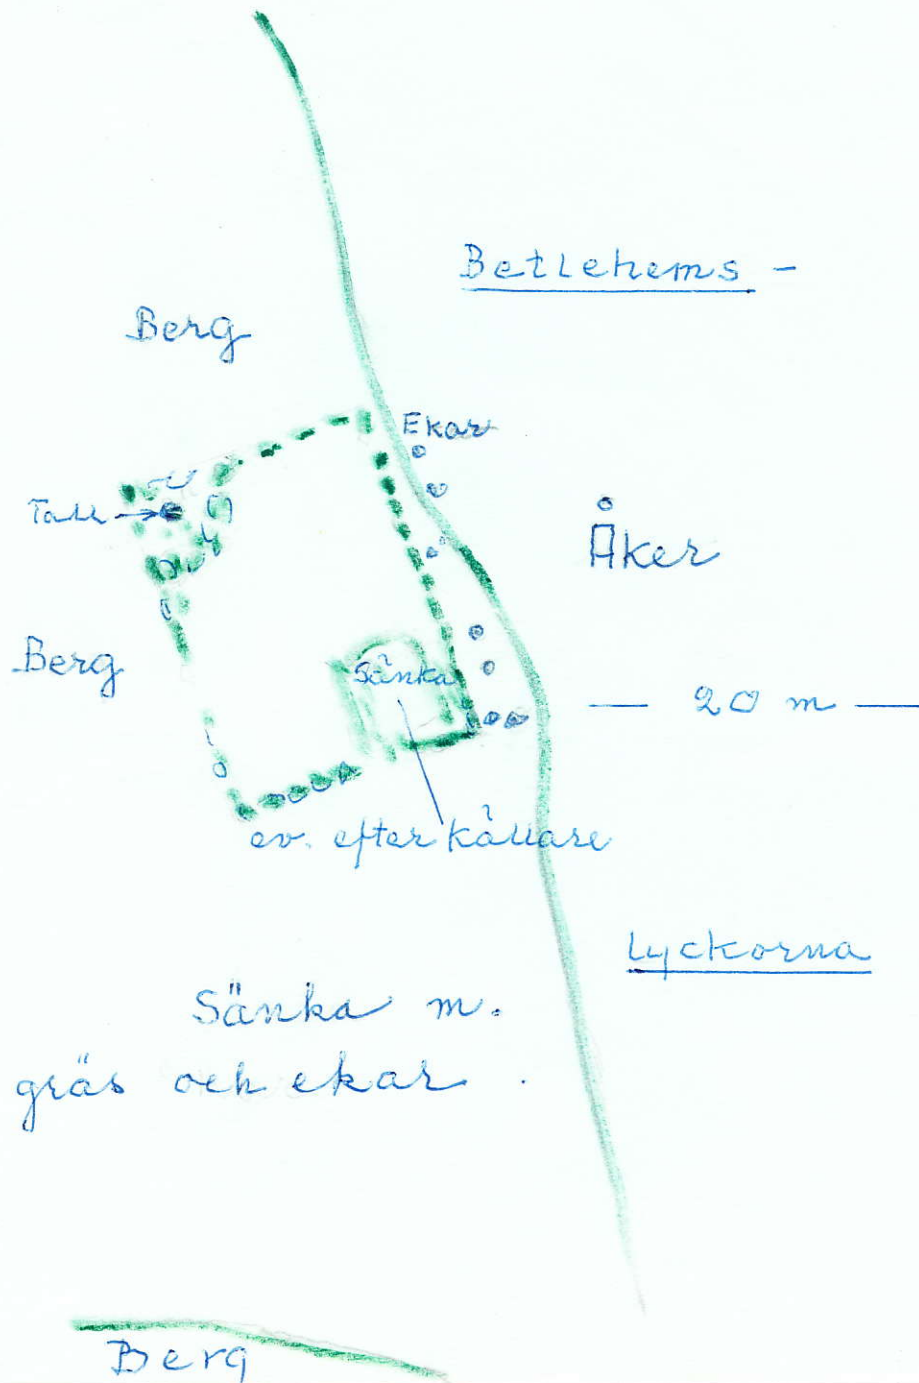 Betlehems -
Berg
Ekar
Tall
Åker
Berg
Sänka
— 20 m —
ev. efter källare
Lyckorna
Sänka m.
gräs och ekar.
Berg